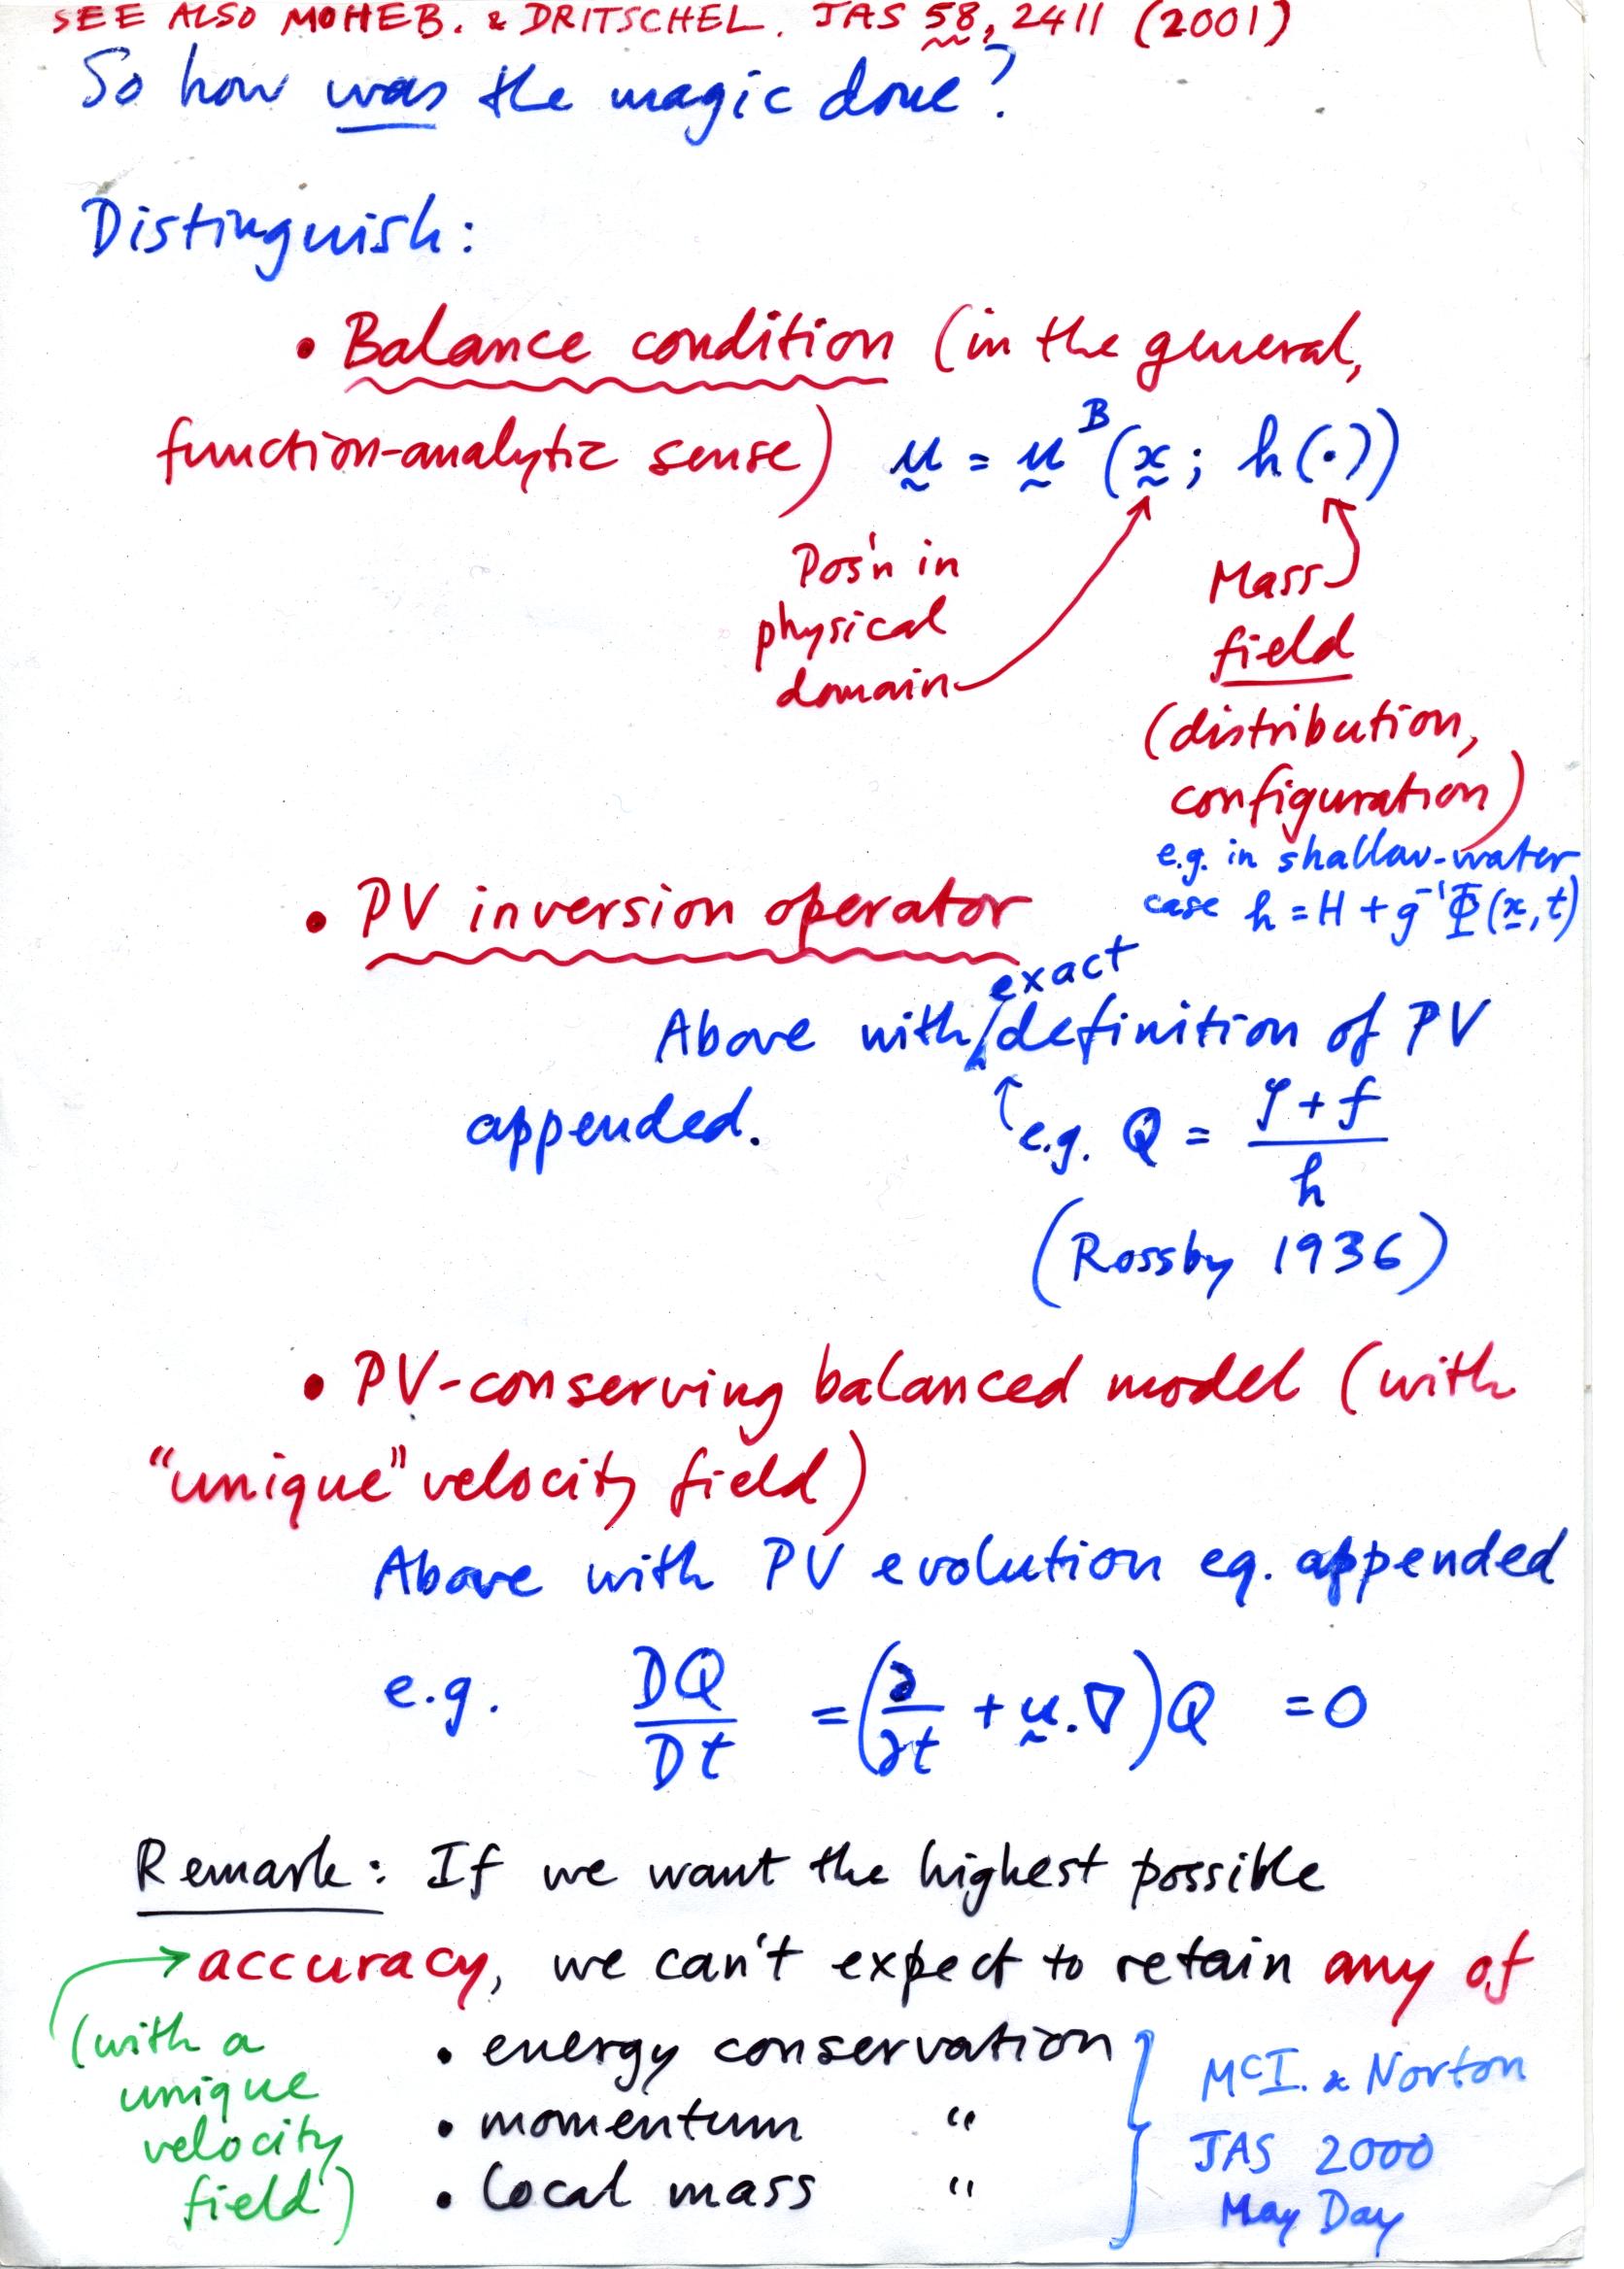 SEE ALSO MOHEB. & DRITSCHEL. JAS 58, 2411 (2001)
So how was the magic done?
Distinguish:
• Balance condition (in the general,
function-analytic sense) u = u^B (x; h(·))
Pos'n in
physical
domain
Mass
field
(distribution,
configuration)
e.g. in shallow-water
case h = H + g⁻¹Φ(x,t)
• PV inversion operator
exact
Above with definition of PV
appended.
e.g. Q = (ζ + f)/h
(Rossby 1936)
• PV-conserving balanced model (with
"unique" velocity field)
Above with PV evolution eq. appended
e.g. DQ/Dt = (∂/∂t + u.∇)Q = 0
Remark: If we want the highest possible
accuracy, we can't expect to retain any of
(with a
unique
velocity
field)
• energy conservation
• momentum "
• local mass "
McI. & Norton
JAS 2000
May Day